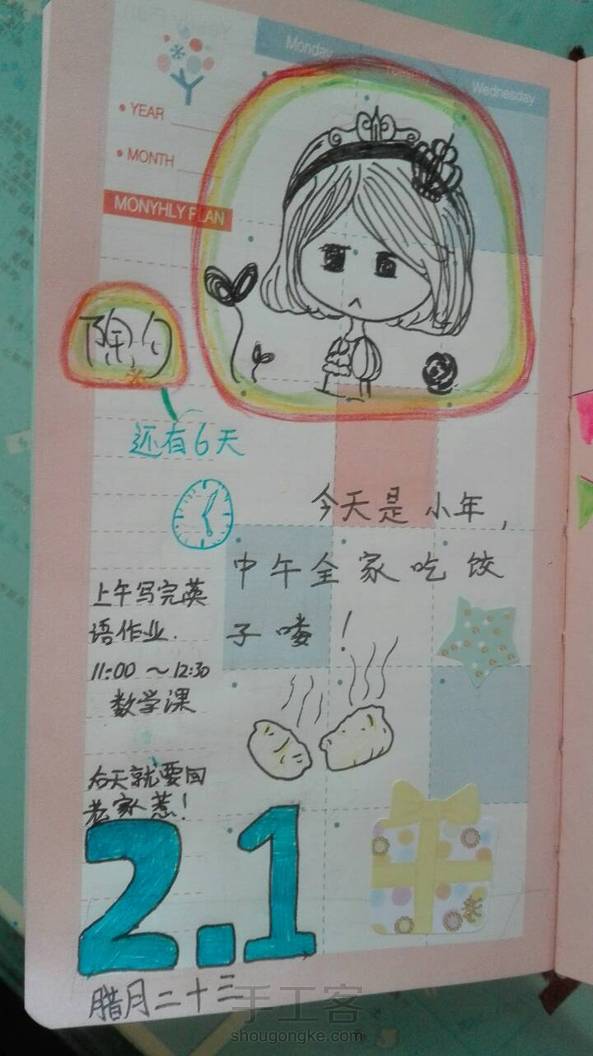 Monday
Wednesday
YEAR
MONTH
MONYHLY PLAN
除夕
还有6天
今天是小年，
中午全家吃饺
子喽！
上午写完英
语作业．
11:00 ～12:30
数学课
后天就要回
老家惹！
2.1
腊月二十三
手工客
shougongke.com